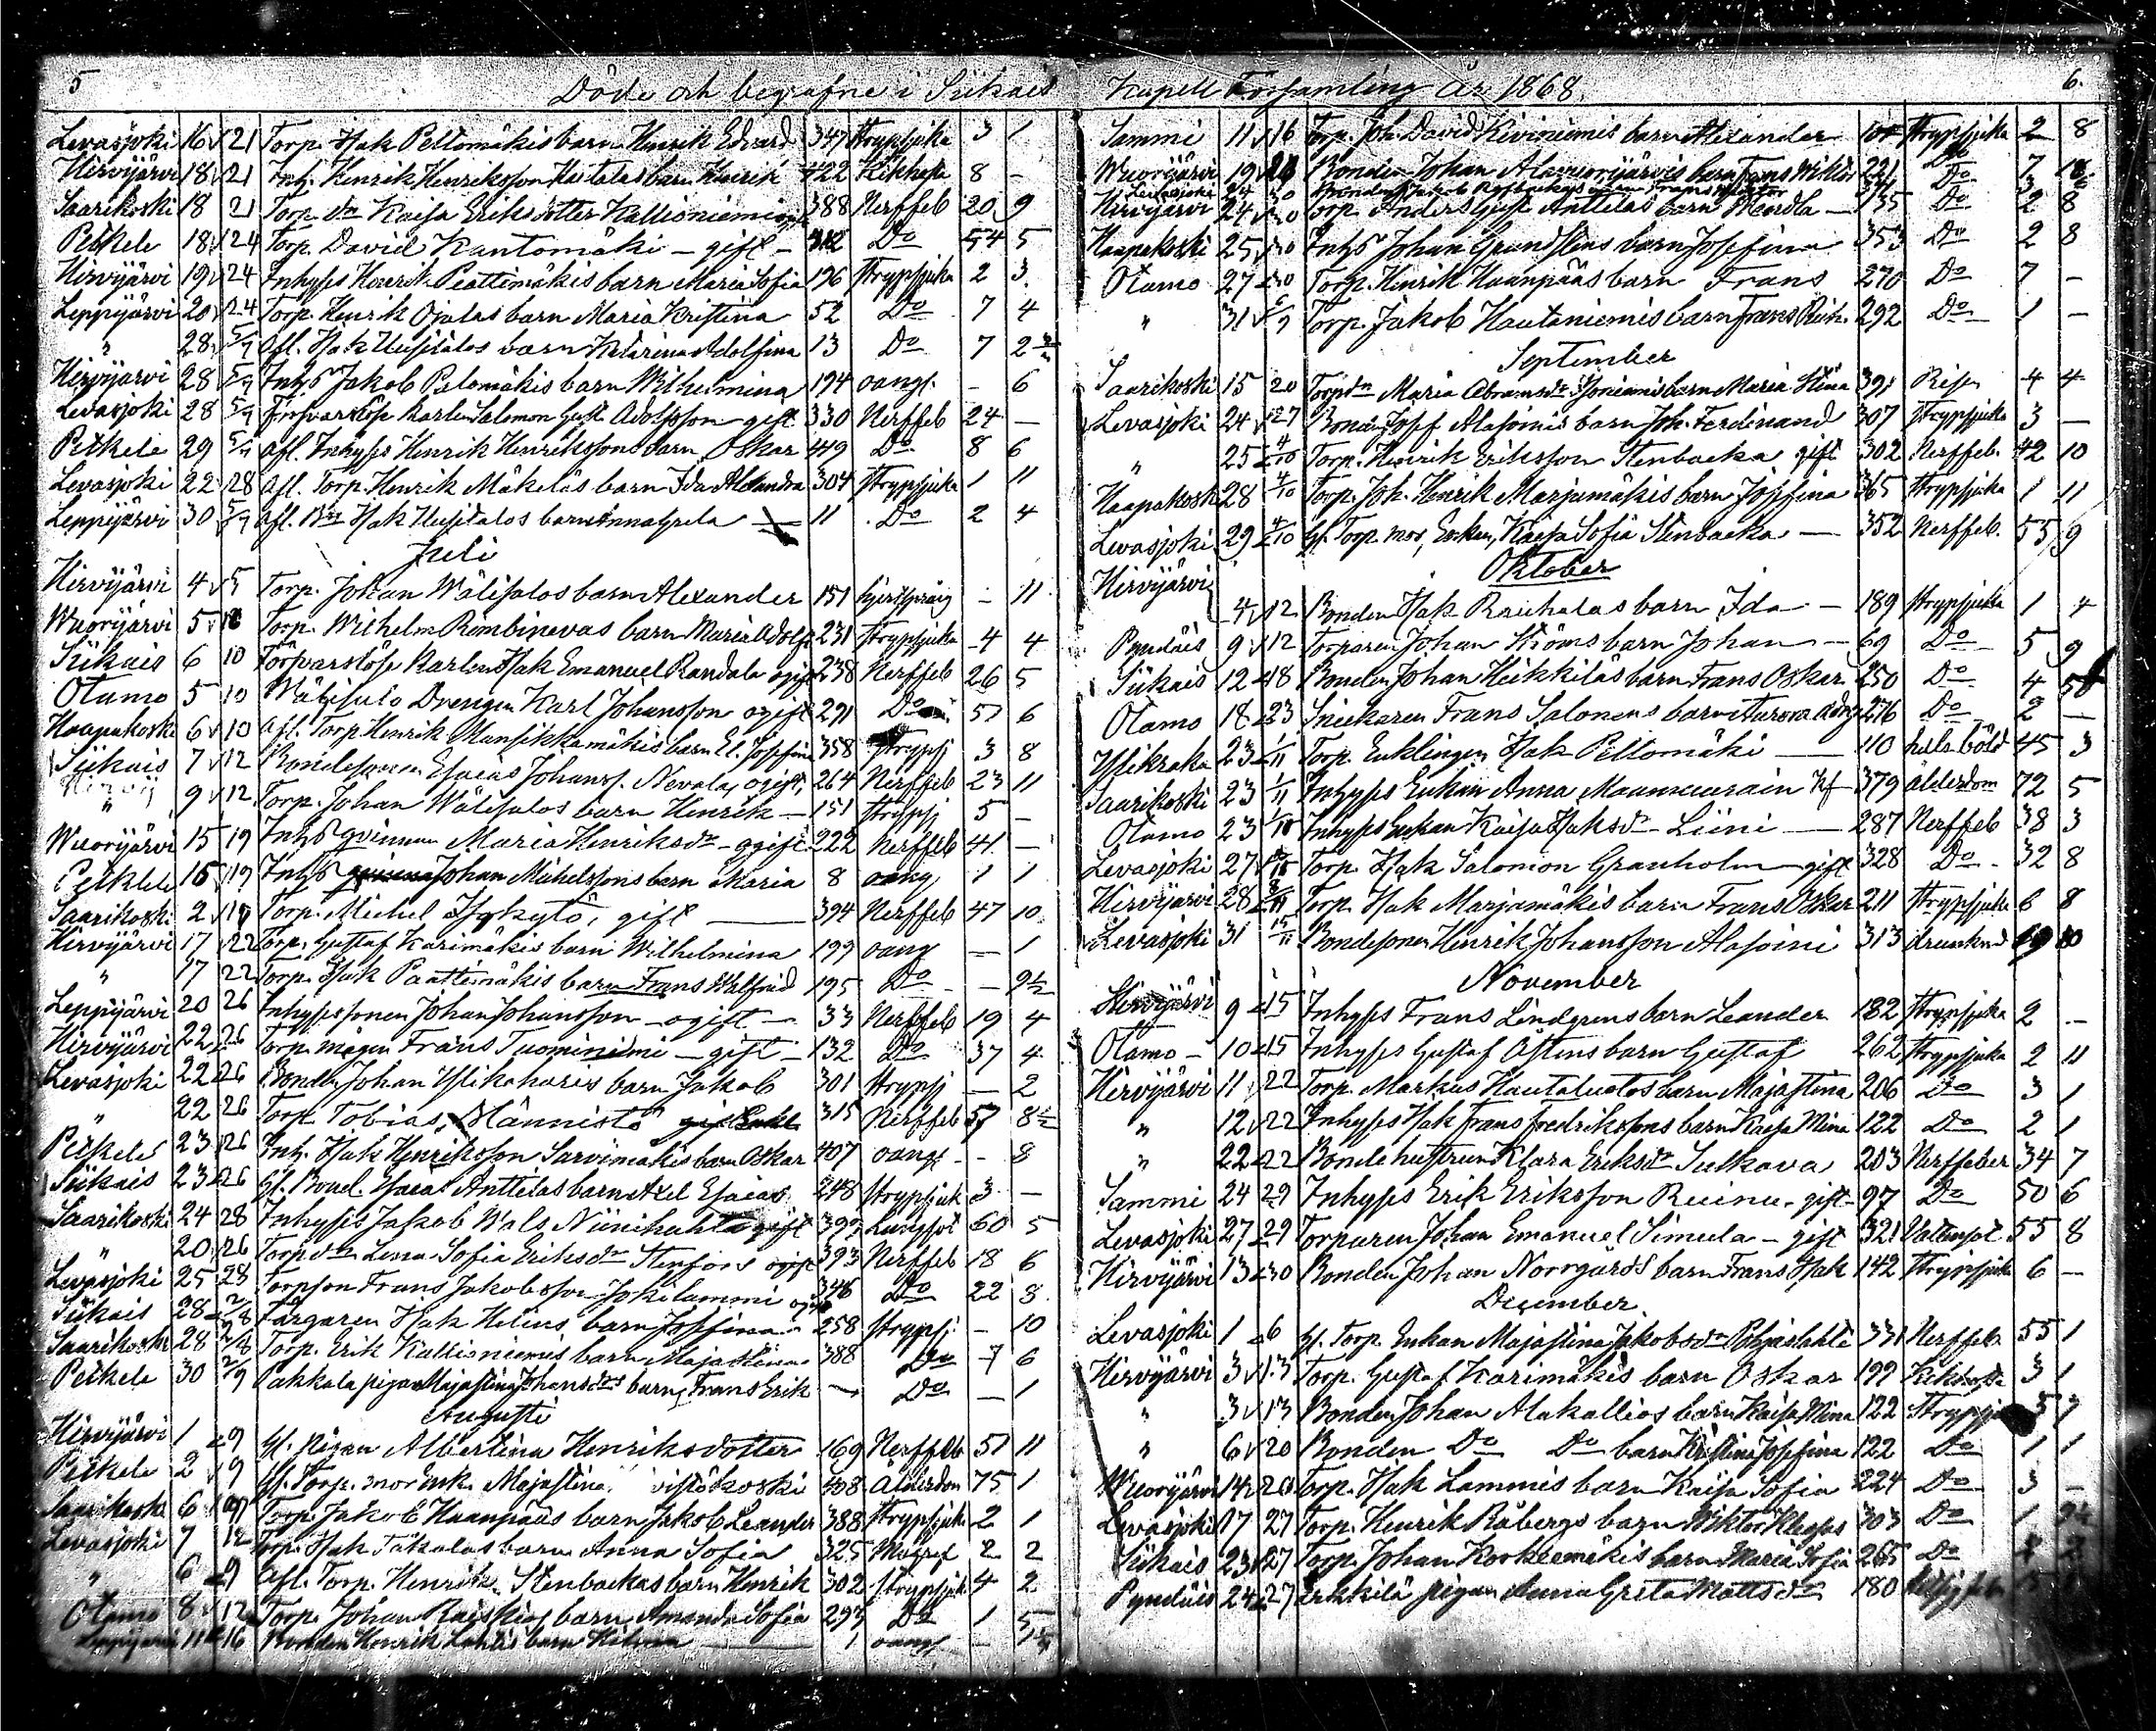 5
Döde och begrafne i Siikais
Levasjoki 16 21 Torp. Isak Peltomäkis barn Henrik Edvard 347 Strypsjuka 3 1
Hirvijärvi 18 21 Inh. Henrik Henriksson barn Henrik 422 Kikhosta 8 -
Saarikoski 18 21 Torp. dr Kaisa Eriksdotter Kallioniemi 388 Nerffeb 20 9
Petkele 18 24 Torp. David Kantomäki - gift - 412 Do 54 5
Hirvijärvi 19 24 Inhyses Henrik Peattimäkis barn Maria Sofia 196 Strypsjuka 2 3
Leppijärvi 20 24 Torp. Henrik Ojalas barn Maria Kristina 52 Do 7 4
" 28 5/7 Afl. Isak Uusitalos barn Katarina Adolfina 13 Do 7 2
Hirvijärvi 28 5/7 Inhs Jakob Palomäkis barn Wilhelmina 194 oangf. - 6
Levasjoki 28 5/7 Förvarslöse Karlen Salomon Gust. Adolfsson gift 330 Nerffeb 24 -
Petkele 29 5/7 Afl. Inhyses Henrik Henrikssons barn Oskar 449 Do 8 6
Levasjoki 22 28 Afl. Torp. Henrik Mäkeläs barn Ida Alexandra 304 Strypsjuka 1 11
Leppijärvi 30 5/7 Afl. Isak Uusitalos barn Anna Greta 11 Do 2 4
Juli
Hirvijärvi 4 5 Torp. Johan Wälisalos barn Alexander 151 - 11
Wuorijärvi 5 Torp. Wilhelm Rimbinevas barn Maria Adolf. 231 Strypsjuka 4 4
Siikais 6 10 Försvarslöse Karlen Isak Emanuel Randala ogift 238 Nerffeb 26 5
Otamo 5 10 Wälisalo Drengen Karl Johansson ogift 291 Do 57 6
Haapakoski 6 10 Afl. Torp Henrik Mansikkamäkis barn El. Josefina 358 Strypsj 3 8
Siikais 7 12 Bondesonen Esaias Johanss. Nevala, ogift 264 Nerffeb 23 11
" 9 12 Torp. Johan Wälisalos barn Henrik - 151 Strypsj 5 -
Wuorijärvi 15 19 Inhs qvinnan Maria Henriksdr - ogift 222 Nerffeb 41 -
Petkele 15 19 Inhs Johan Mickelssons barn Maria 8 oang 1 1
Saarikoski 2 Torp. Michel Hyhytö, gift 394 Nerffeb 47 10
Hirvijärvi 17 22 Torp. Gustaf Karimäkis barn Wilhelmina 199 oang - 1
" 17 22 Torp. Isak Paattimäkis barn Frans Walfrid 195 Do - 9½
Leppijärvi 20 26 Inhysessonen Johan Johansson - ogift - 33 Nerffeb 19 4
Hirvijärvi 22 26 Torp. mågen Frans Tuominiemi - gift - 132 Do 37 4
Levasjoki 22 26 Bonden Johan Ylikaharis barn Jakob 301 Strypsj - 2
" 22 26 Torp Tobias Männistö Enkl 315 Nerffeb 57 8½
Petkele 23 26 Inh. Isak Henriksson Sarvimäkis barn Oskar 407 oangf - 8
Siikais 23 26 Sf. Bond. Isaias Anttilas barn Axel Esaias 248 Strypsjuk 3 -
Saarikoski 24 28 Inhyses Jakob Wals Niinikahta gift 392 Lungsot 60 5
" 20 26 Torp. dr Lena Sofia Eriksdr Stenfors ogift 393 Nerffeb 18 6
Levasjoki 25 28 Torpson Frans Jakobsson Jokilammi ogift 346 Do 22 8
Siikais 28 2/8 Färgaren Isak Helins barn Josefina 258 Strypsj - 10
Saarikoski 28 2/8 Torp. Erik Kallioniemis barn Majastina 388 Do 7 6
Petkele 30 2/9 Pakkala pigan Majastina Johansdrs barn Frans Erik - Do - 1
Augusti
Hirvijärvi 1 9 Sf. Pigan Albertina Henriksdotter 169 Nerffeb 51 11
Petkele 2 9 Sf. Torp. mor Enk. Majastina 408 Ålderdom 75 1
Saarikoski 6 Torp. Jakob Haanpääs barn Jakob Leander 388 Strypsjuk 2 1
Levasjoki 7 12 Torp. Isak Takalas barn Anna Sofia 325 2 2
" 6 9 Afl. Torp. Henrik Stenbackas barn Henrik 302 Strypsjuk 4 2
Otamo 8 12 Torp. Johan Raiskios barn Amanda Sofia 293 Do 1
Leppijärvi 11 16 Bonden Henrik Lahtis barn 1 oangf
Kapell Församling År 1868
6.
Sammi 11 16 Torp. Joh. David Kiviniemis barn Alexander Strypsjuka 2 8
Wuorijärvi 19 Bonden Johan Alavuorijärvis barn Frans Wiktor 221 Do 7
Hirvijärvi 24 30 Torp. Anders Gust. Anttilas barn 135 Do 2 8
Haapakoski 25 30 Inhs Johan Grundstens barn Josefina 353 Do 2 8
Otamo 27 30 Torp. Henrik Haanpääs barn Frans 270 Do 7 -
" 31 6/9 Torp. Jakob Hautaniemis barn Frans 292 Do 1 -
September
Saarikoski 15 20 Torp dr Maria Abramsdr barn Maria Stina 391 4 4
Levasjoki 24 27 Bonden Josef Alasoinis barn Joh. Ferdinand 307 Strypsjuka 3 -
" 25 4/10 Torp. Henrik Eriksson Stenbacka gift 302 Nerffeb. 42 10
Haapakoski 28 4/10 Torp. Joh. Henrik Marjamäkis barn Josefina 365 Strypsjuka 1 11
Levasjoki 29 4/10 Sf. Torp. mor, Enkan, Kaisa Sofia Stenbacka - 352 Nerffeb. 55 9
Oktober
Hirvijärvi
4 12 Bonden Isak Rauhalas barn Ida - 189 Strypsjuka 1 4
Pyndäis 9 12 Torparen Johan Ströms barn Johan - 69 Do 5 9
Siikais 12 18 Bonden Johan Heikkiläs barn Frans Oskar 250 Do 4
Otamo 18 23 Snickaren Frans Salonens barn Aurora 276 Do 2 -
23 1/11 Torp. Enklingen Isak Peltomäki - 110 hals böld 45 3
Saarikoski 23 1/11 Inhyses Enkan Anna 379 ålderdom 72 5
Otamo 23 Inhyses Enkan Kaisa Isaksdr Liini - 287 Nerffeb 38 3
Levasjoki 27 Torp. Isak Salomon Granholm - gift 328 Do 32 8
Hirvijärvi 28 8/11 Torp. Isak Marjamäkis barn Frans Oskar 211 Strypsjuka 6 8
Levasjoki 31 15/11 Bondesonen Henrik Johansson Alasoini 313 drunknad 10
November
Hirvijärvi 9 15 Inhyses Frans Lindgrens barn Leander 182 Strypsjuka 2 -
Otamo - 10 15 Inhyses Gustaf Östens barn Gustaf 262 Strypsjuka 2 11
Hirvijärvi 11 22 Torp. Markus Hautaluotos barn Majastina 206 Do 3 1
" 12 22 Inhyses Isak Frans Fredrikssons barn Kaisa Mina 122 Do 2 1
" 22 22 Bondehustrun Klara Eriksdr Sulkava 203 Nerffeber 34 7
Sammi 24 29 Inhyses Erik Eriksson Ruinu - gift - 97 Do 50 6
Levasjoki 27 29 Torparen Johan Emanuel Simula - gift 321 Vattensot 55 8
Hirvijärvi 13 30 Bonden Johan Norrgårds barn Frans Isak 142 Strypsjuka 6 -
December
Levasjoki 1 6 Sf. Torp. Enkan Majastina Jakobsdr Pohjaslahti 331 Nerffeb 55 1
Hirvijärvi 3 13 Torp. Gustaf Karimäkis barn Oskar 199 Kikhosta 3 1
" 3 13 Bonden Johan Alakallios barn Kaisa Mina 122 Strypsju 5 7
" 6 20 Bonden Do Do barn Kristina Josefina 122 Do 1 1
Wuorijärvi 14 20 Torp. Isak Lammis barn Kaisa Sofia 224 Do 3 -
Levasjoki 17 27 Torp. Henrik Råbergs barn Wiktor Kleofas 303 Do 1
Siikais 23 27 Torp. Johan Korkeemäkis barn Maria Sofia 265 Do
Pyndäis 24 27 Erkkilä pigan Anna Greta Mattsdr 180